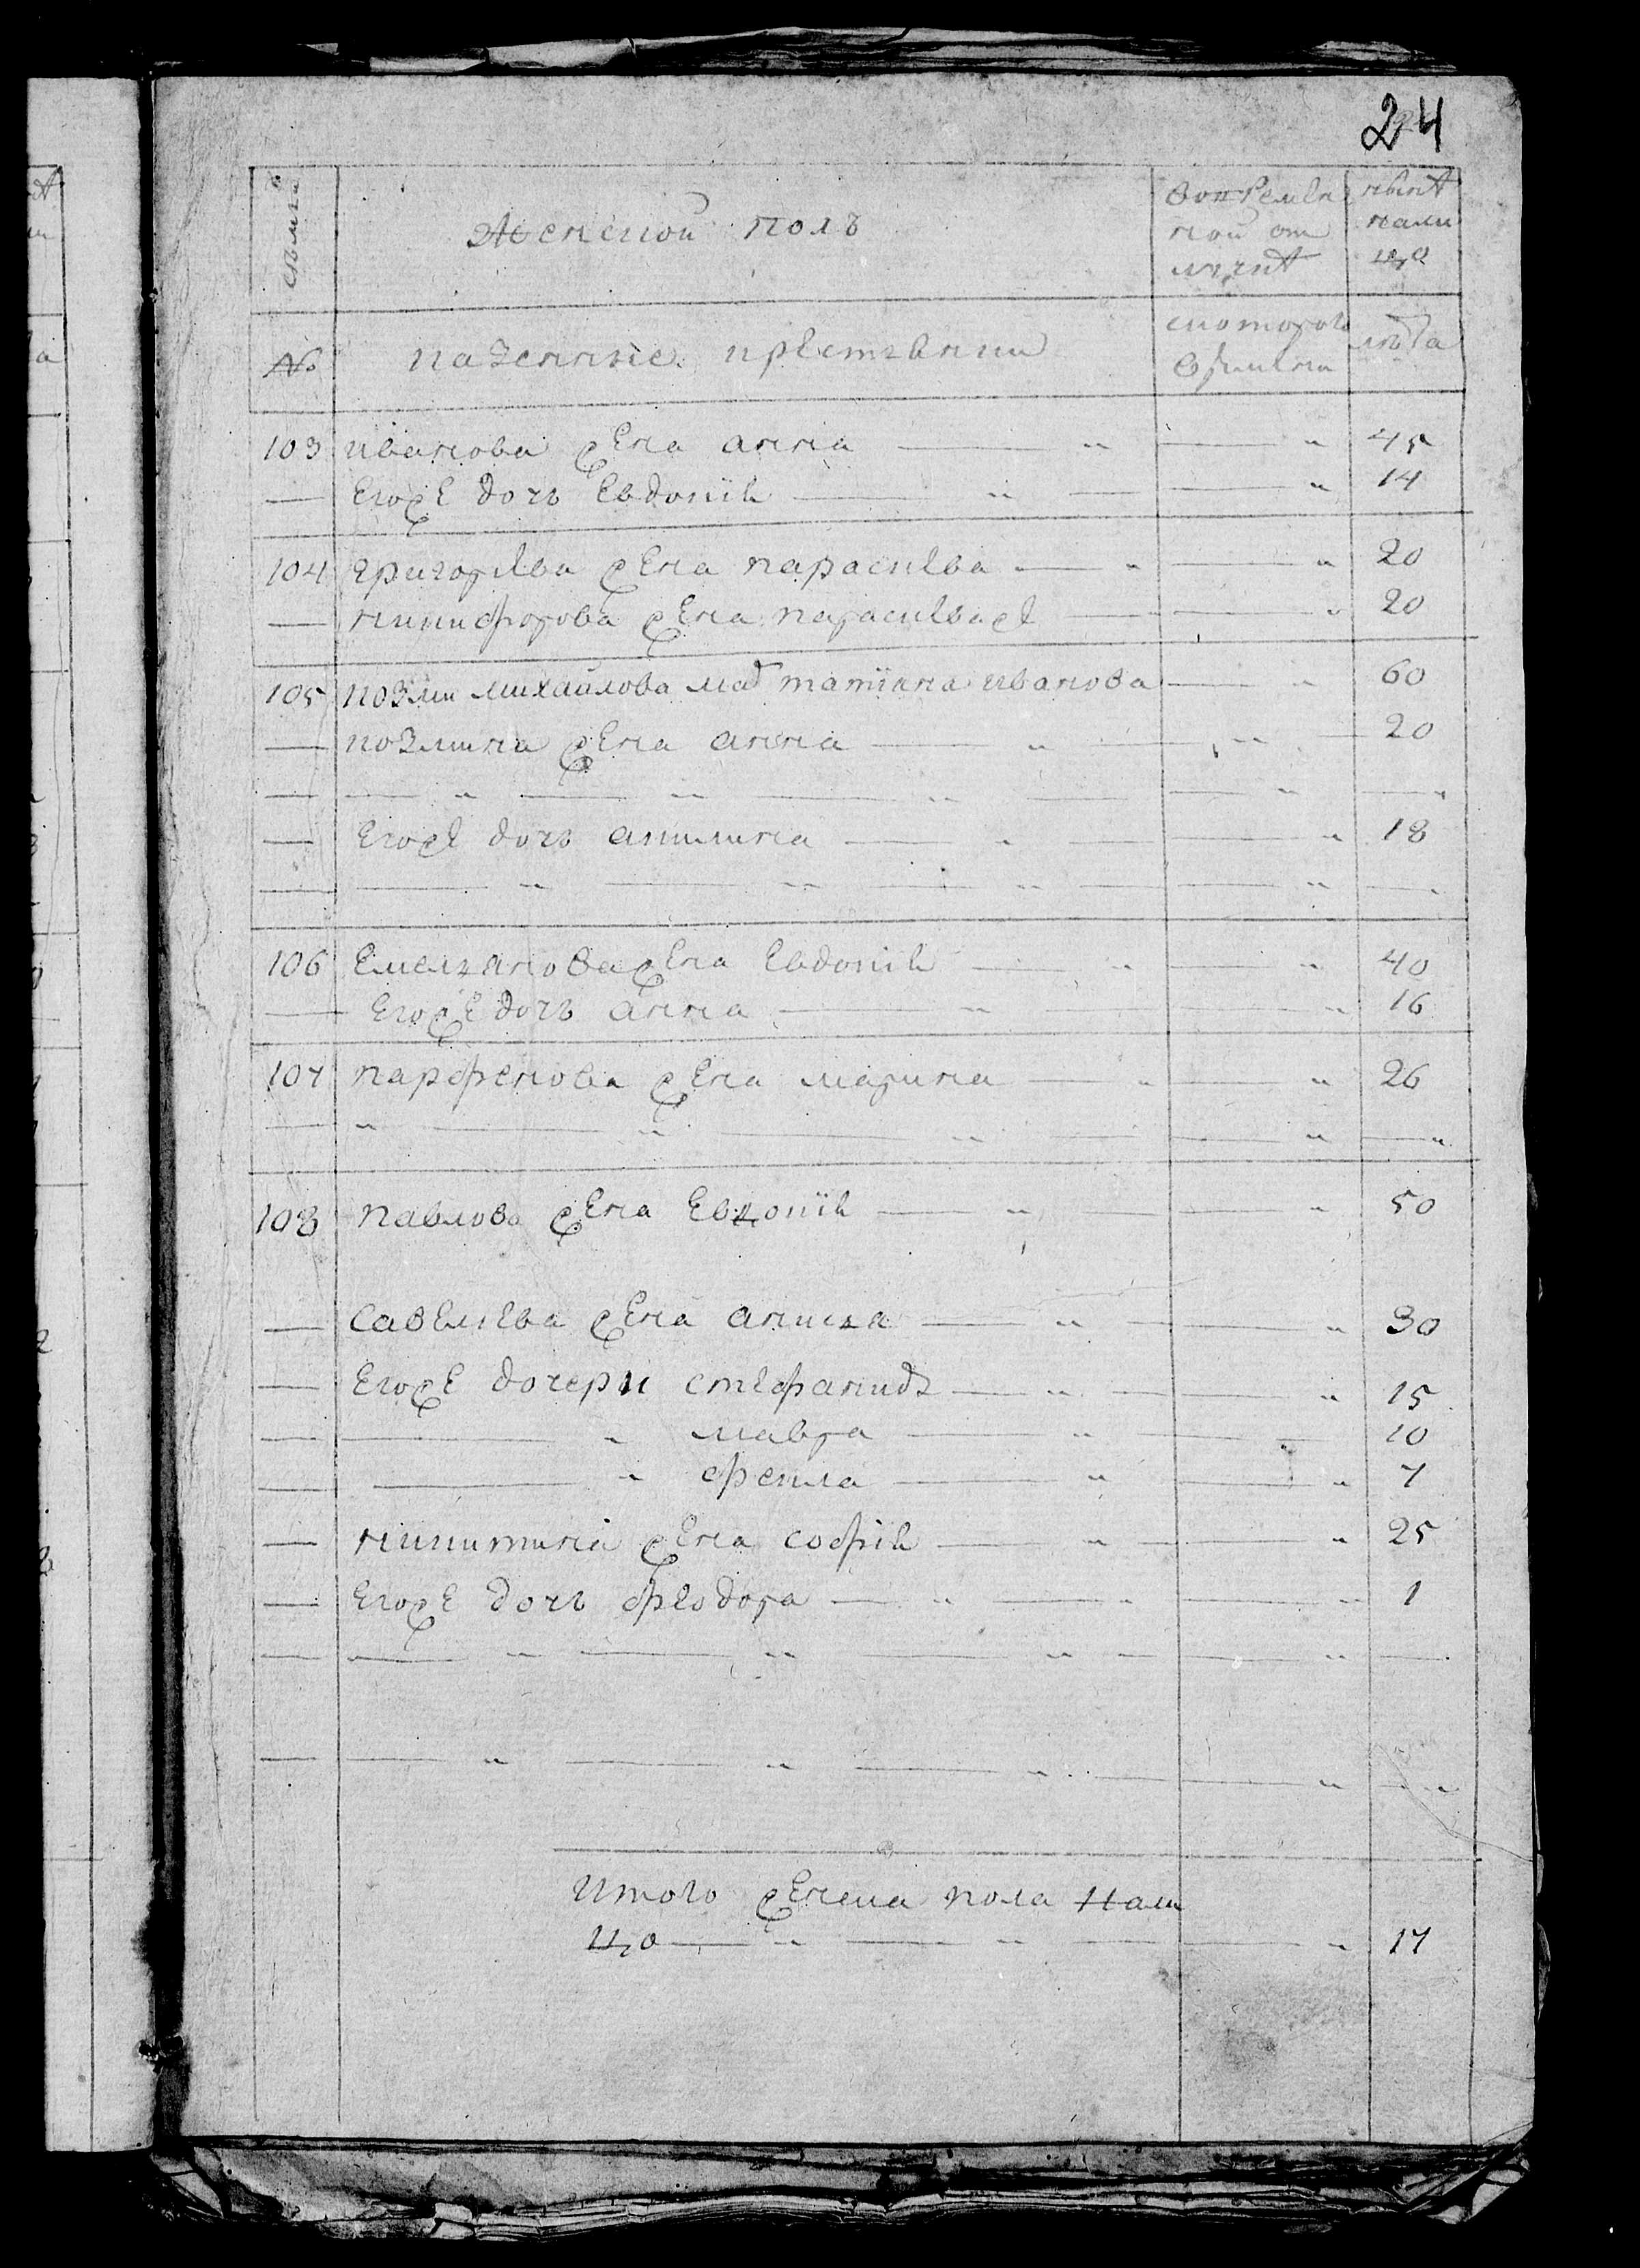 24
семьи
Женской полъ
во временной отлучке
ныне налицо
№
казенные крестьянки
с которого времени
лета
103 иванова жена анна 45
— Егоже дочь Евдокия 14
104 григорьева жена парасковья 20
— никифорова жена парасковья 20
105 козми михайлова мать татиана иванова 60
— козмина жена анна 20
— Егоже дочь акилина 18
106 Емельянова жена Евдокия 40
— Егоже дочь анна 16
107 парфенова жена марина 26
108 павлова жена Евдокия 50
— савельева жена анисья 30
— Егоже дочери стефанида 15
— мавра 10
— фекла 7
— никитина жена софия 25
— Егоже дочь феодора 1
Итого женска пола нали
цо 17